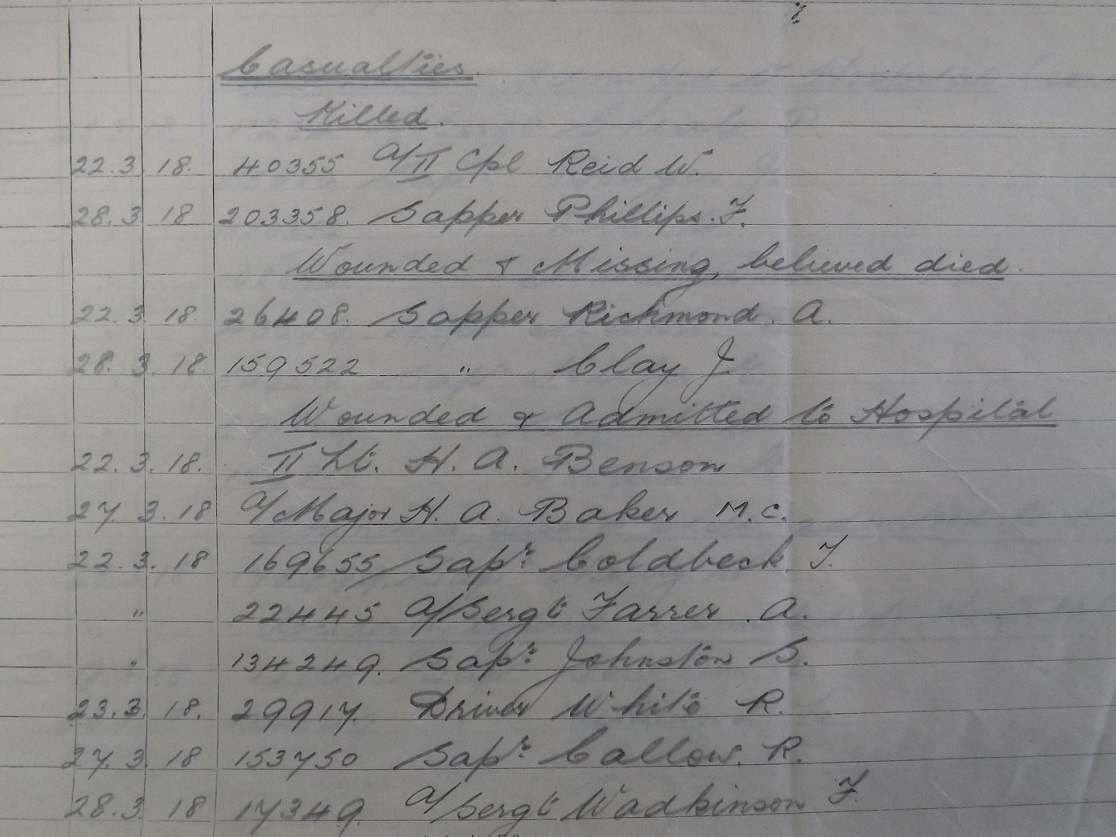 Casualties.
Killed.
22.3.18. 40355 a/II Cpl Reid W.
28.3.18 203358. Sapper Phillips. F.
Wounded & Missing, believed died.
22.3.18. 26408. Sapper Richmond. A.
28.3.18 159522 " Clay J.
Wounded & Admitted to Hospital
22.3.18. II Lt. H. A. Benson
27.3.18 a/Major H. A. Baker M.C.
22.3.18 169655 Sapr. Coldbeck. F.
" 22445 a/Sergt Farrer. A.
" 134249. Sapr. Johnston S.
23.3.18. 29917. Driver White R.
27.3.18 153750 Sapr. Callow. R.
28.3.18 17349. a/Sergt Wadkinson F.